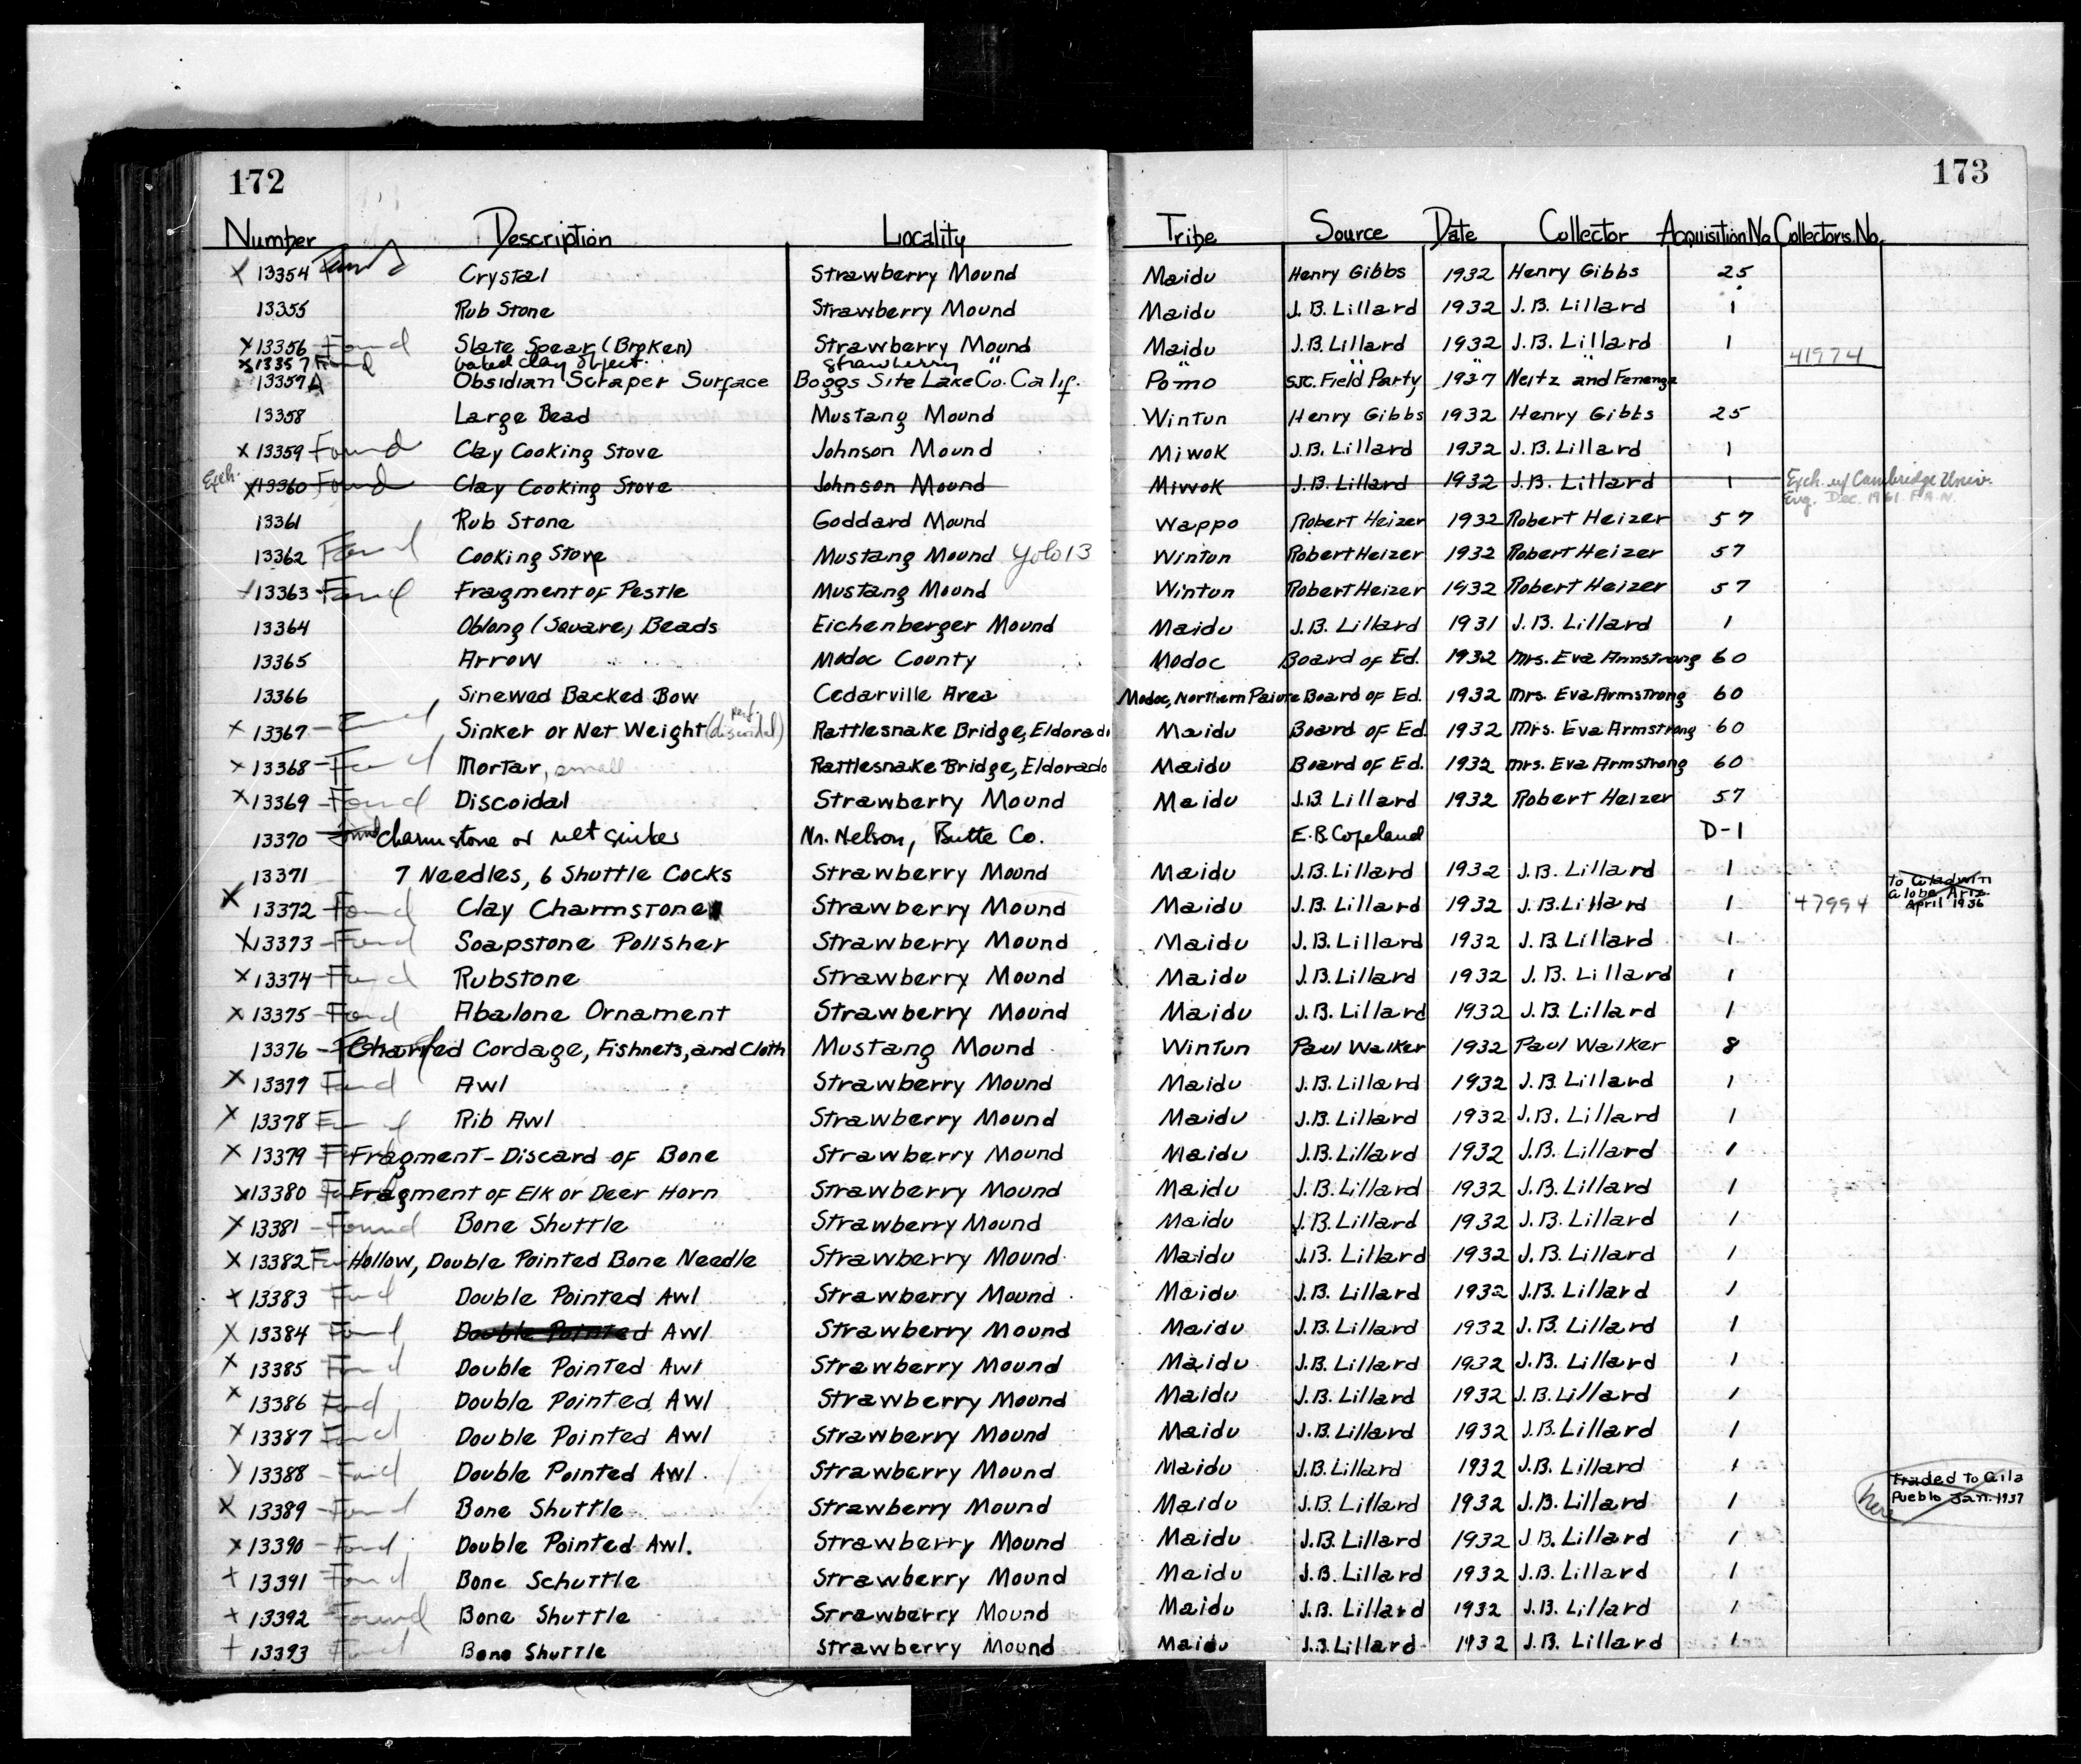 172
173
Number Description Locality Tribe Source Date Collector Acquisition No. Collectors No.
x 13354 Found Crystal Strawberry Mound Maidu Henry Gibbs 1932 Henry Gibbs 25
13355 Rub Stone Strawberry Mound Maidu J. B. Lillard 1932 J. B. Lillard 1
x 13356 Found Slate Spear (Broken) Strawberry Mound Maidu J. B. Lillard 1932 J. B. Lillard 1
x 13357 Found baked clay object strawberry " " " " 41974
13357A Obsidian Scraper Surface Boggs Site Lake Co. Calif. Pomo SJC. Field Party 1937 Neitz and Fenenga
13358 Large Bead Mustang Mound Wintun Henry Gibbs 1932 Henry Gibbs 25
x 13359 Found Clay Cooking Stove Johnson Mound Miwok J. B. Lillard 1932 J. B. Lillard 1
Exch. x 13360 Found Clay Cooking Stove Johnson Mound Miwok J. B. Lillard 1932 J. B. Lillard 1 Exch. w/ Cambridge Univ.
Eng. Dec. 1961. F.A.N.
13361 Rub Stone Goddard Mound Wappo Robert Heizer 1932 Robert Heizer 57
13362 Found Cooking Stove Mustang Mound Yolo 13 Wintun Robert Heizer 1932 Robert Heizer 57
13363 Found Fragment of Pestle Mustang Mound Wintun Robert Heizer 1932 Robert Heizer 57
13364 Oblong (Square) Beads Eichenberger Mound Maidu J. B. Lillard 1931 J. B. Lillard 1
13365 Arrow Modoc County Modoc Board of Ed. 1932 Mrs. Eva Armstrong 60
13366 Sinewed Backed Bow Cedarville Area Modoc, Northern Paiute Board of Ed. 1932 Mrs. Eva Armstrong 60
x 13367 Found Sinker or Net Weight (perf. discoidal) Rattlesnake Bridge, Eldorado Maidu Board of Ed. 1932 Mrs. Eva Armstrong 60
x 13368 Found Mortar, small Rattlesnake Bridge, Eldorado Maidu Board of Ed. 1932 Mrs. Eva Armstrong 60
x 13369 Found Discoidal Strawberry Mound Maidu J. B. Lillard 1932 Robert Heizer 57
13370 Found Charmstone or net sinker Nr. Nelson, Butte Co. E. B. Copeland D-1
13371 7 Needles, 6 Shuttle Cocks Strawberry Mound Maidu J. B. Lillard 1932 J. B. Lillard 1 to Gladwin
x 13372 Found Clay Charmstone Strawberry Mound Maidu J. B. Lillard 1932 J. B. Lillard 1 47994 Globe Ariz.
April 1936
x 13373 Found Soapstone Polisher Strawberry Mound Maidu J. B. Lillard 1932 J. B. Lillard 1
x 13374 Found Rubstone Strawberry Mound Maidu J. B. Lillard 1932 J. B. Lillard 1
x 13375 Found Abalone Ornament Strawberry Mound Maidu J. B. Lillard 1932 J. B. Lillard 1
13376 Found Charred Cordage, Fishnets, and Cloth Mustang Mound Wintun Paul Walker 1932 Paul Walker 8
x 13377 Found Awl Strawberry Mound Maidu J. B. Lillard 1932 J. B. Lillard 1
x 13378 Found Rib Awl Strawberry Mound Maidu J. B. Lillard 1932 J. B. Lillard 1
x 13379 Fragment - Discard of Bone Strawberry Mound Maidu J. B. Lillard 1932 J. B. Lillard 1
x 13380 Fragment of Elk or Deer Horn Strawberry Mound Maidu J. B. Lillard 1932 J. B. Lillard 1
x 13381 Found Bone Shuttle Strawberry Mound Maidu J. B. Lillard 1932 J. B. Lillard 1
x 13382 Hollow, Double Pointed Bone Needle Strawberry Mound Maidu J. B. Lillard 1932 J. B. Lillard 1
x 13383 Found Double Pointed Awl Strawberry Mound Maidu J. B. Lillard 1932 J. B. Lillard 1
x 13384 Found Double Pointed Awl Strawberry Mound Maidu J. B. Lillard 1932 J. B. Lillard 1
x 13385 Found Double Pointed Awl Strawberry Mound Maidu J. B. Lillard 1932 J. B. Lillard 1
x 13386 Found Double Pointed Awl Strawberry Mound Maidu J. B. Lillard 1932 J. B. Lillard 1
x 13387 Found Double Pointed Awl Strawberry Mound Maidu J. B. Lillard 1932 J. B. Lillard 1
x 13388 Found Double Pointed Awl. Strawberry Mound Maidu J. B. Lillard 1932 J. B. Lillard 1 Traded to Gila
x 13389 Found Bone Shuttle Strawberry Mound Maidu J. B. Lillard 1932 J. B. Lillard 1 here Pueblo Jan. 1937
x 13390 Found Double Pointed Awl. Strawberry Mound Maidu J. B. Lillard 1932 J. B. Lillard 1
x 13391 Found Bone Schuttle Strawberry Mound Maidu J. B. Lillard 1932 J. B. Lillard 1
x 13392 Found Bone Shuttle Strawberry Mound Maidu J. B. Lillard 1932 J. B. Lillard 1
x 13393 Found Bone Shuttle Strawberry Mound Maidu J. B. Lillard 1932 J. B. Lillard 1